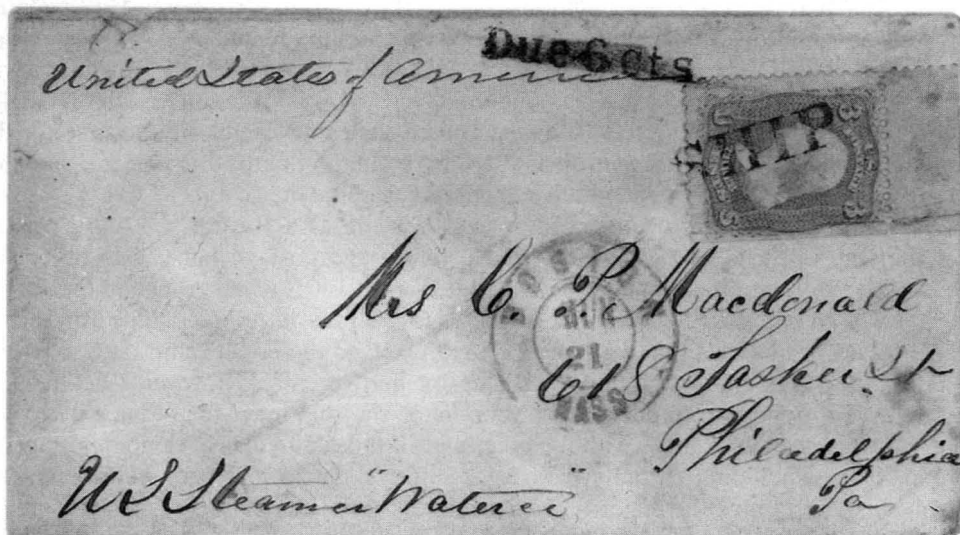 Due 6 cts
United States of America
SHIP
U 3
3 S
BOSTON
21
MASS
Mrs C. P. Macdonald
618 Tasker St
Philadelphia
Pa
US Steamer "Wateree"